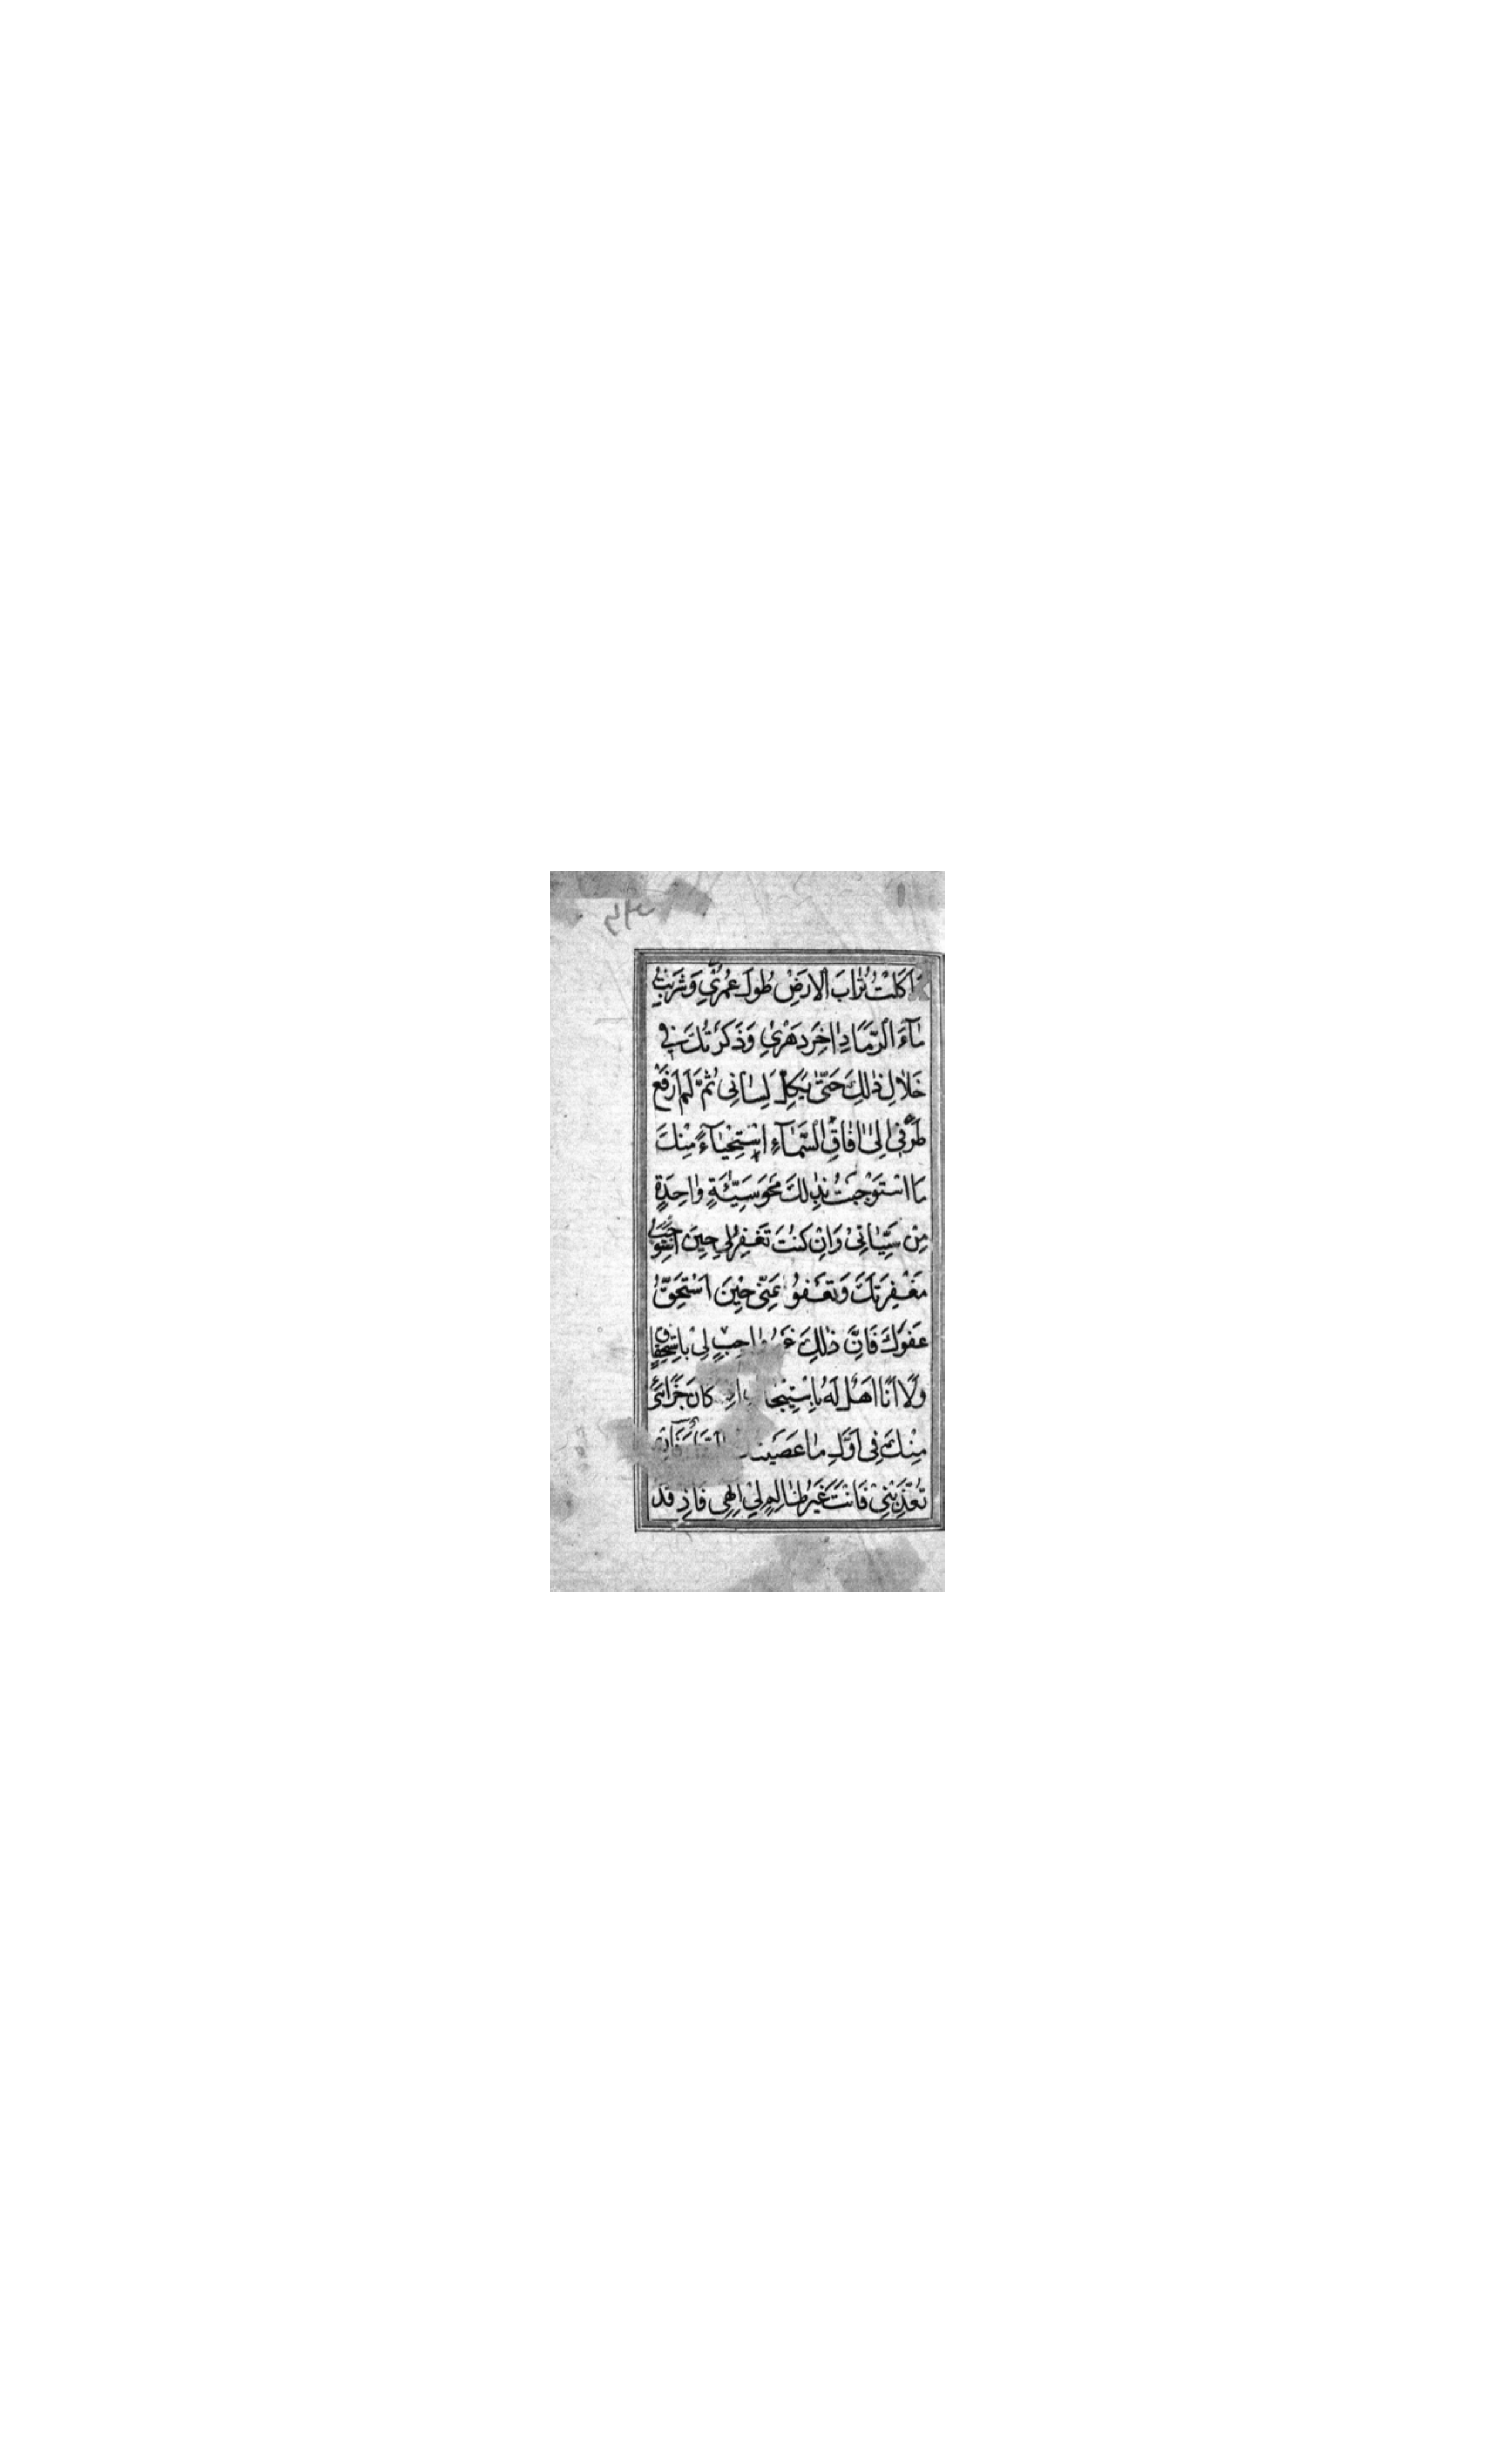 اَكَلْتُ تُرٰابَ الْاَرَضْ طُولَ عُمُرِّي وَشَرَبْتُ
مٰآءَ الرَّمٰادِ اٰخِرَ دَهْرِي وَذَكَرْتُكَ فِي
خِلَالِ ذٰلِكَ حَتّٰى يَكِلَّ لِسٰانِى ثُمَّ لَمْ اَرْفَعْ
طَرْفِى اِلىٰ اٰفٰاقِ السَّمٰآءِ اسْتِحْيٰآءً مِنْكَ
مَا اسْتَوْجَبْتُ بِذٰلِكَ مَحْوَ سَيِّئَةٍ وٰاحِدَةٍ
مِنْ سَيِّئٰاتِى وَاِنْ كُنْتَ تَغْفِرُ لِي حِيْنَ اَسْتَوْجِبُ
مَغْفِرَتَكَ وَتَعْفُو عَنِّى حِيْنَ اَسْتَحِقُّ
عَفْوَكَ فَاِنَّ ذٰلِكَ غَيْرُ وٰاجِبٍ لِى بِاسْتِحْقٰاقٍ
وَلَا اَنَا اَهْلٌ لَهُ بِاسْتِيْجٰابٍ اِذْ كٰانَ جَزٰائِى
مِنْكَ فِى اَوَّلِ مٰا عَصَيْتُكَ
تُعَذِّبْنِى فَاَنْتَ غَيْرُ ظٰالِمٍ لِيْ اِلٰهِى فَاِذْ قَدْ